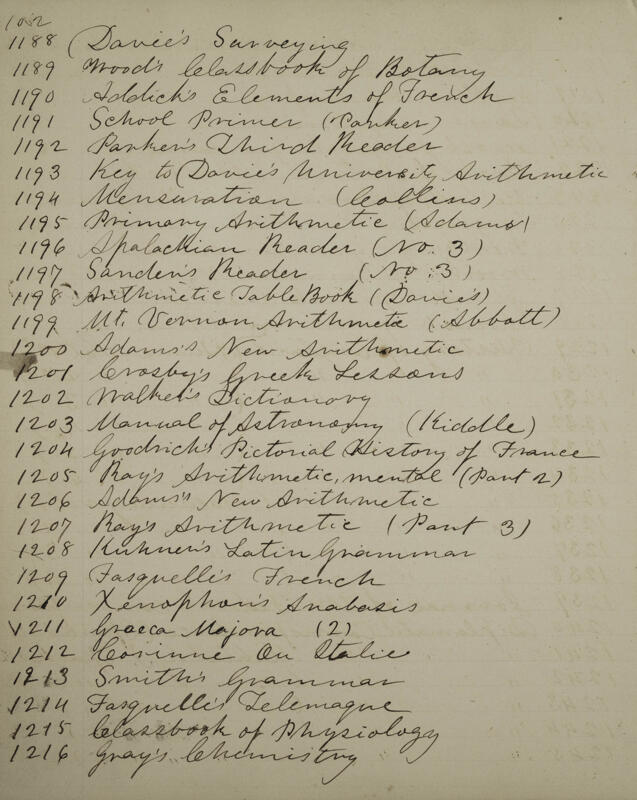 1188 Davie's Surveying
1189 Wood's Classbook of Botany
1190 Addick's Elements of French
1191 School Primer (Parker)
1192 Parker's Third Reader
1193 Key to Davie's University Arithmetic
1194 Mensuration (Collins)
1195 Primary Arithmetic (Adams)
1196 Apalachian Reader (No. 3)
1197 Sander's Reader (No. 3)
1198 Arithmetic Table Book (Davies)
1199 Mt. Vernon Arithmetic (Abbott)
1200 Adams's New Arithmetic
1201 Crosby's Greek Lessons
1202 Walker's Dictionary
1203 Manual of Astronomy (Kiddle)
1204 Goodrich's Pictorial History of France
1205 Ray's Arithmetic, mental (Part 2)
1206 Adams's New Arithmetic
1207 Ray's Arithmetic (Part 3)
1208 Kuhner's Latin Grammar
1209 Fasquelle's French
1210 Xenophon's Anabasis
1211 Graeca Majora (2)
1212 Corinne Ou Italie
1213 Smith's Grammar
1214 Fasquelle's Telemaque
1215 Classbook of Physiology
1216 Gray's Chemistry